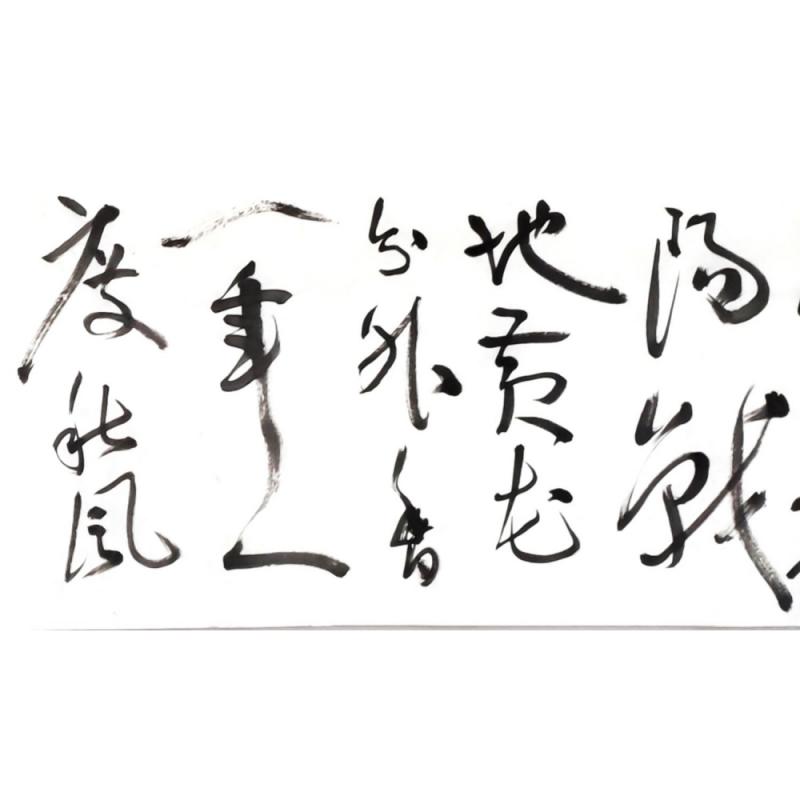 陽戰
地黄花
分外香
一年一
度秋風